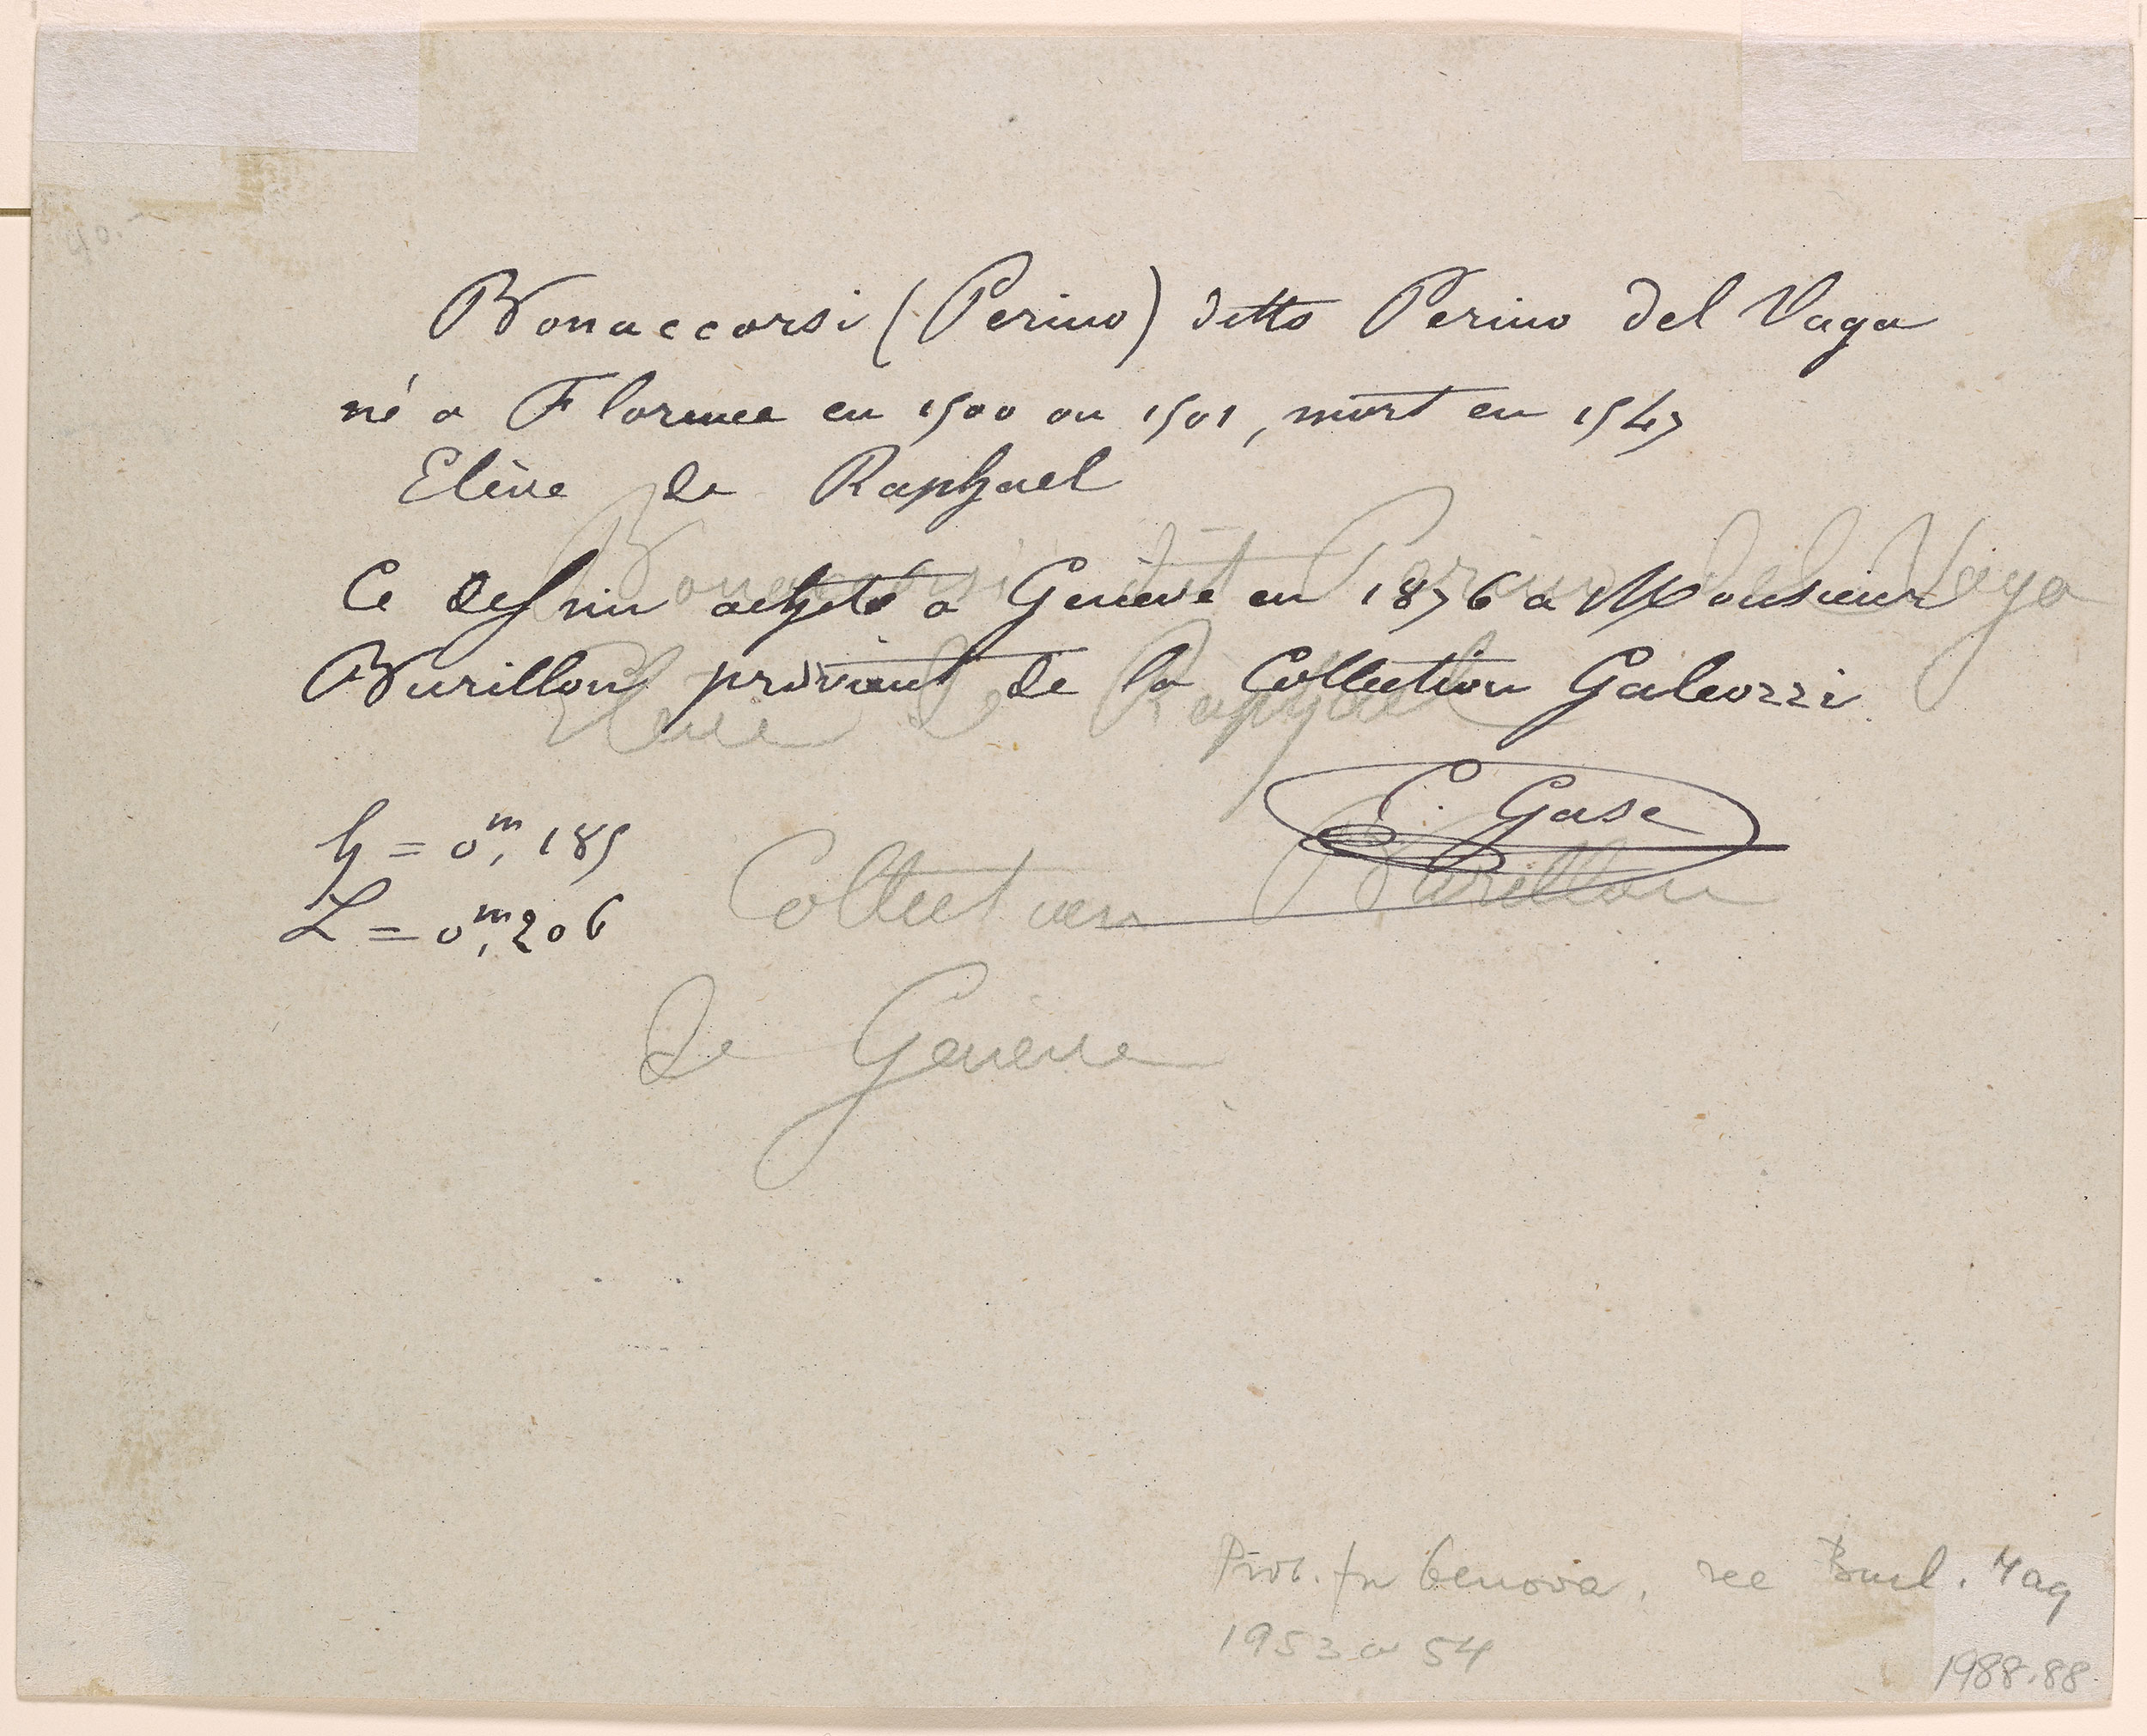 Bonaccorsi (Perino) ditto Perino del Vaga
né a Florence en 1500 ou 1501, mort en 1547
Elève de Raphael
Bonaccorsi dit Perino del Vaga
Ce dessin acheté a Genève en 1876 a Monsieur
Burillon provient de la Collection Galeozzi
Eleve de Raphael
C. Gase
h = 0m,185
Collection Burillon
L = 0m,206
de Geneve
Prob. fr Genova, see Burl. Mag
1953 or 54
1988.88